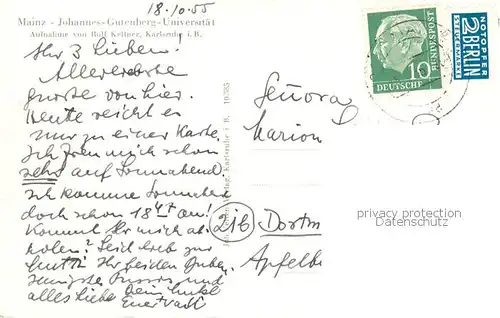 18.10.55
Mainz - Johannes-Gutenberg-Universität
Aufnahme von Rolf Kellner, Karlsruhe i. B.
Ihr 3 Lieben!
Allerherzlichste
Grüsse von hier.
Heute reicht es
nur zu einer Karte.
Ich freu mich schon
sehr auf Sonnabend.
Ich komme Sonnabend
doch schon 18 47 an!
Kommt Ihr mich ab-
holen? Seid lieb zur
Mutti Ihr beiden
alles liebe
Verlag, Karlsruhe i. B. 10385
Señora
Marion
21b Dortm
Apfelbe
10
DEUTSCHE
BUNDESPOST
NOTOPFER
2 BERLIN
STEUERMARKE
privacy protection
Datenschutz